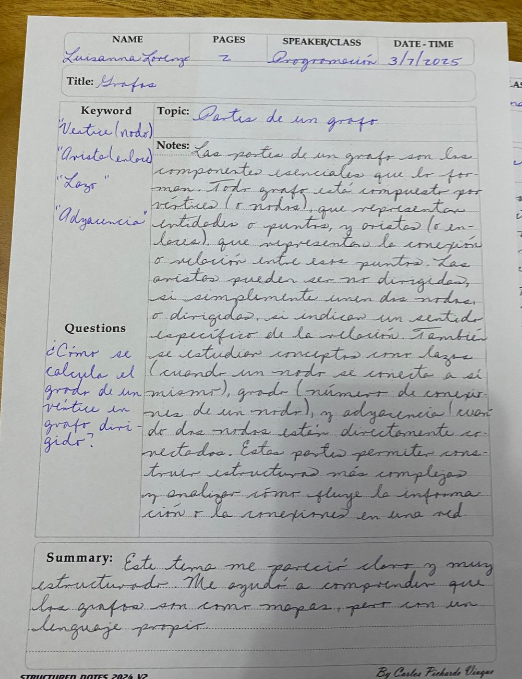 NAME PAGES SPEAKER/CLASS DATE - TIME
Luisanna Lorenzo 2 Programación 3/7/2025
Title: Grafos
Keyword
"Vértice (nodo)
"Arista (enlace)
"Lazo"
"Adyacencia"
Questions
¿Cómo se
calcula el
grado de un
vértice en
grafo diri-
gido?
Topic: Partes de un grafo
Notes: Las partes de un grafo son los
componentes esenciales que lo for-
man. Todo grafo está compuesto por
vértices (o nodos), que representan
entidades o puntos, y aristas (o en-
laces), que representan la conexión
o relación entre esos puntos. Las
aristas pueden ser no dirigidas,
si simplemente unen dos nodos,
o dirigidas, si indican un sentido
específico de la relación. También
se estudian conceptos como lazos
(cuando un nodo se conecta a sí
mismo), grado (número de conexio-
nes de un nodo), y adyacencia (cuan-
do dos nodos están directamente co-
nectados. Estas partes permiten cons-
truir estructuras más complejas
y analizar cómo fluye la informa
ción o la conexiones en una red
Summary: Este tema me pareció claro y muy
estructurado. Me ayudó a comprender que
los grafos son como mapas, pero con un
lenguaje propio.
STRUCTURED NOTES 2024 V2 By Carlos Pichardo Viuque